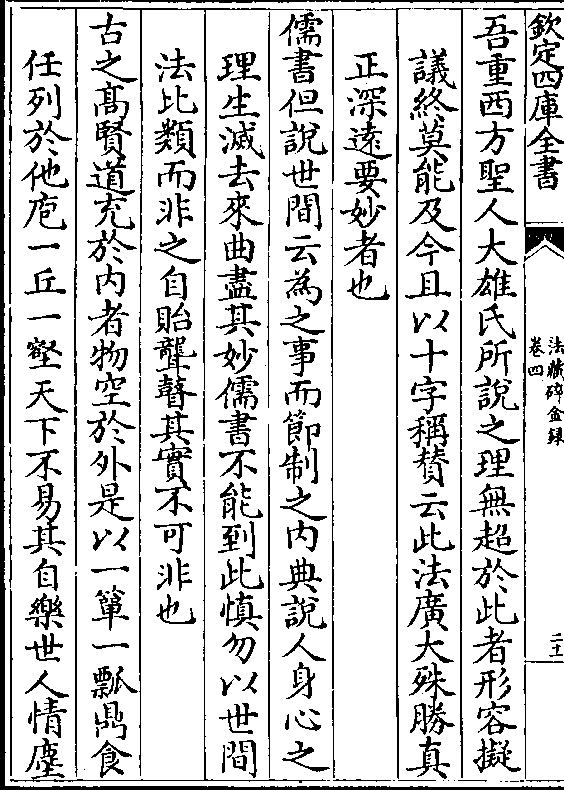 欽定四庫全書
法藏碎金録
卷四
二十
吾重西方聖人大雄氏所說之理無超於此者形容擬
議終莫能及今且以十字稱賛云此法廣大殊勝真
正深遠要妙者也
儒書但說世間云為之事而節制之内典說人身心之
理生滅去來曲盡其妙儒書不能到此慎勿以世間
法比類而非之自貽聾瞽其實不可非也
古之髙賢道充於内者物空於外是以一簞一瓢鼎食
任列於他庖一丘一壑天下不易其自樂世人情塵